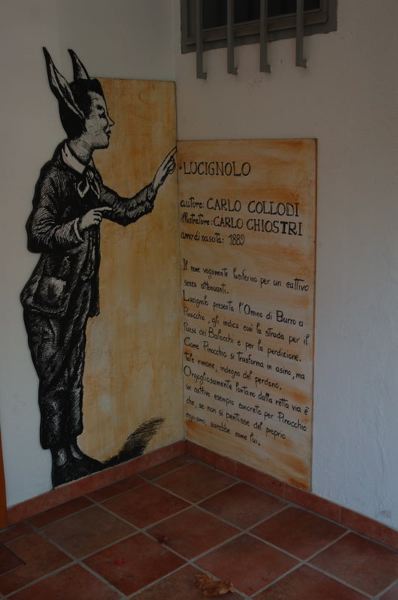 • LUCIGNOLO
autore: CARLO COLLODI
illustratore: CARLO CHIOSTRI
anno di nascita: 1883
Un nome vagamente luciferino per un cattivo
senza attenuanti.
Lucignolo presenta l'Omino di Burro a
Pinocchio, gli indica così la strada per il
Paese dei Balocchi e per la perdizione.
Come Pinocchio si trasforma in asino, ma
tale rimane, indegno del perdono.
Orgogliosamente lontano dalla retta via è
un cattivo esempio concreto per Pinocchio
che, se non si pentisse del proprio
egoismo, sarebbe come lui.